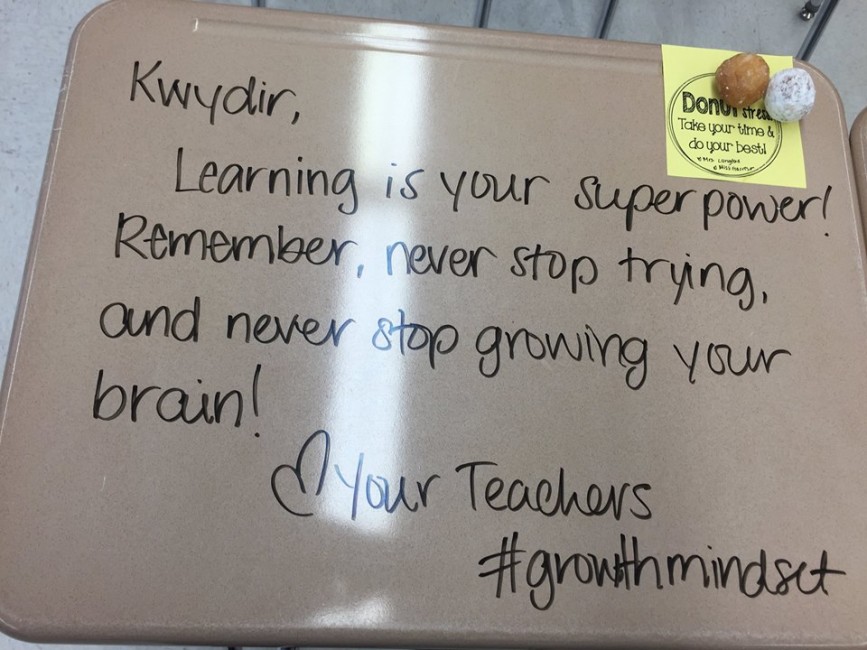 Kwydir,
Learning is your superpower!
Remember, never stop trying,
and never stop growing your
brain!
♡ your Teachers
#growthmindset
Donut stress
Take your time &
do your best!
Mrs.